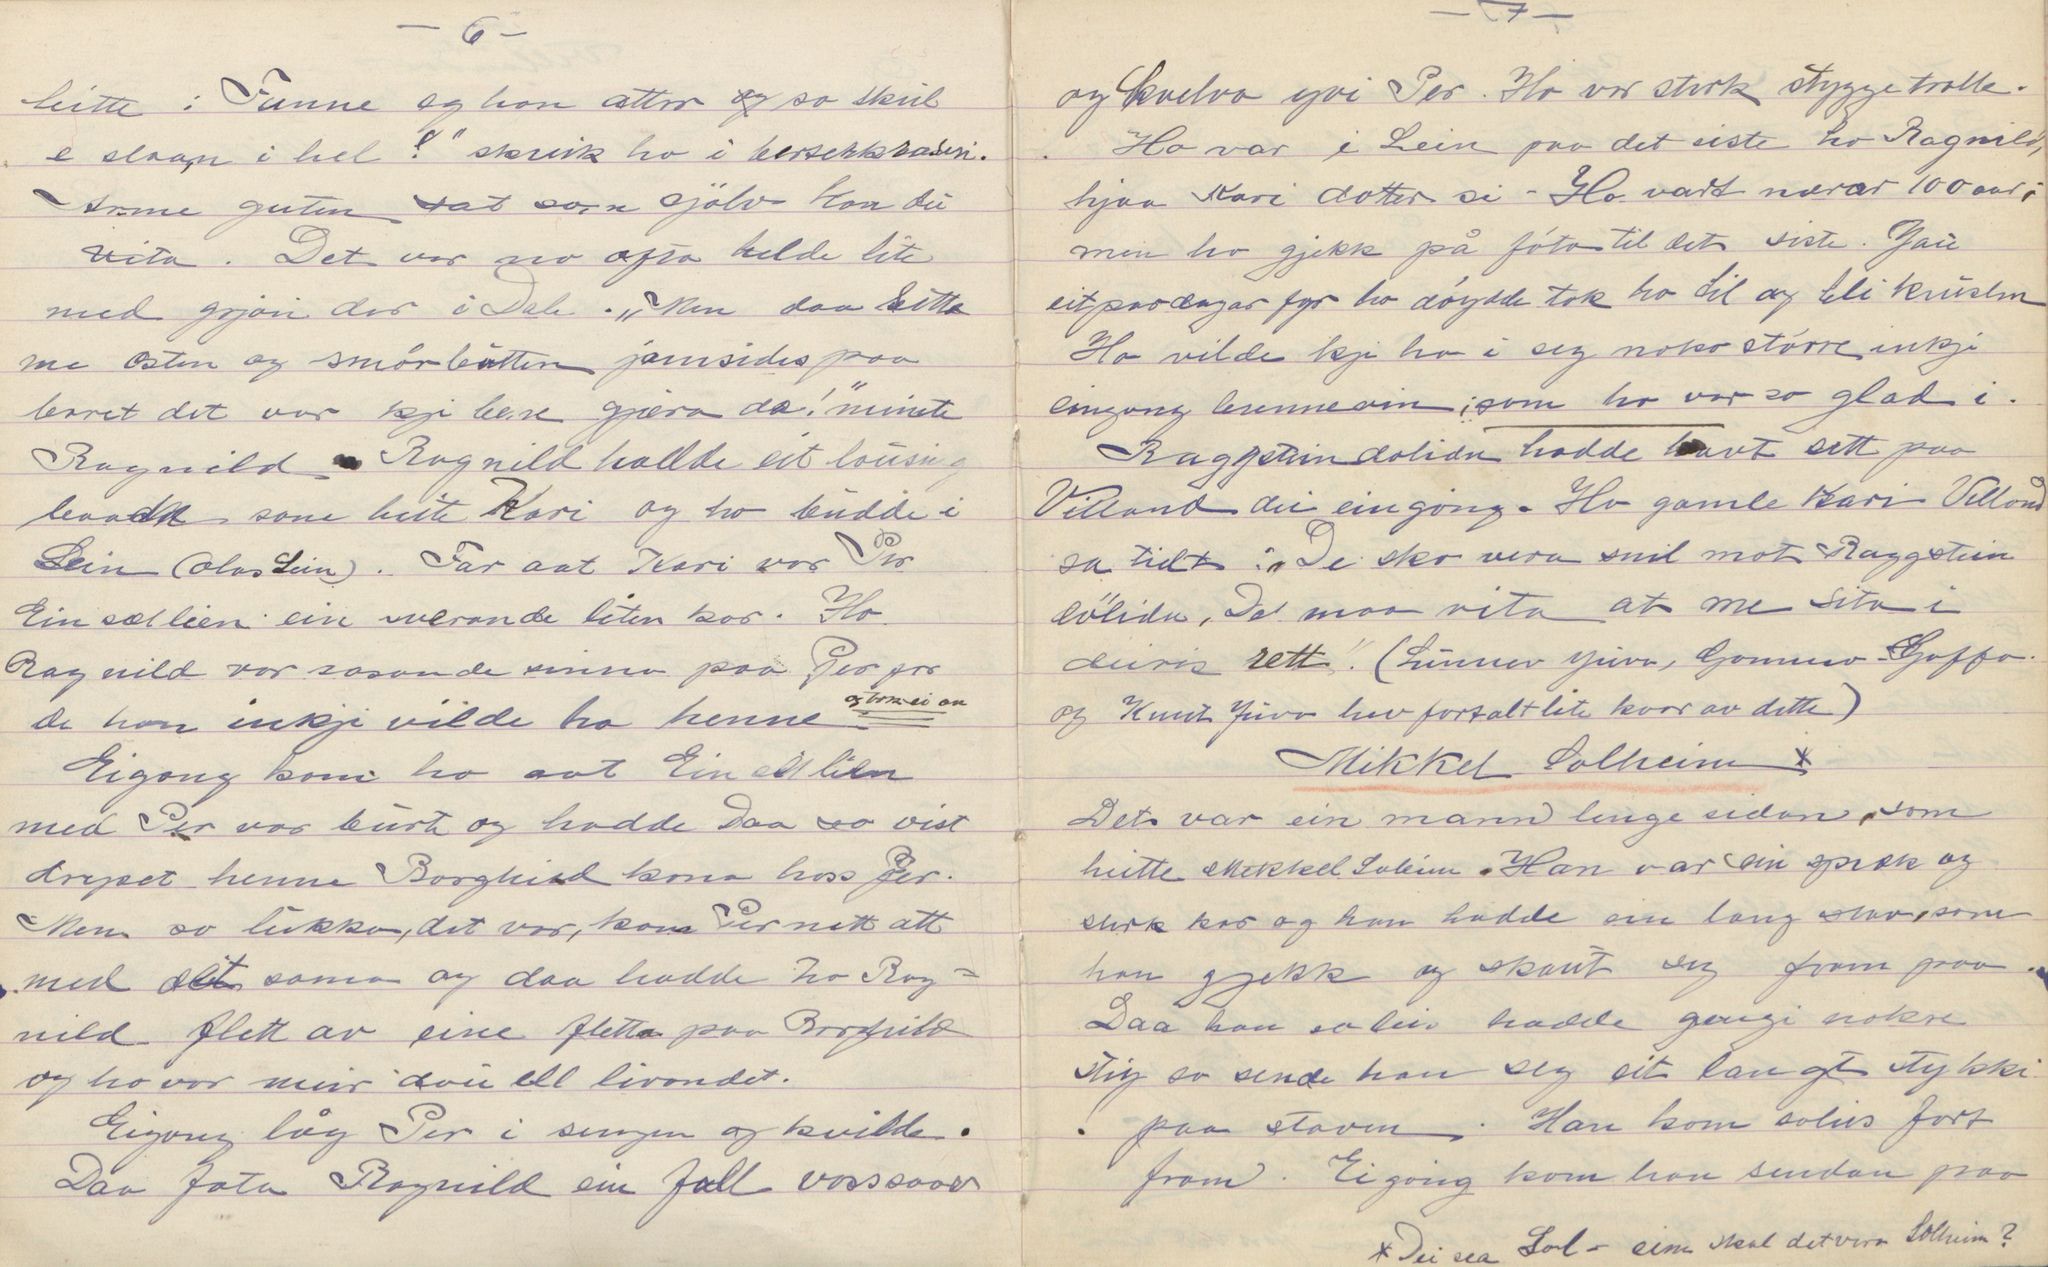 - 6 -
hitte i Fanne og han atter og so skul
e slaan i hel!" skreik ho i berserkrasen.
Arme guten sat som sjölv kan du
vita. Det var no ofta helde lite
med grjón der i Dale. "Men daa hitte
me osten og smörbutten jamsides paa
boret det var kji bere gjera da!" meinte
Ragnild. Ragnild hadde eit lausing
baadn som heite Kari og ho budde i
Lein (Olas Lein). Far aat Kari var Per
Einsetlien ein liten kar. Ho
Ragnild var rasande sinna paa Per for
de han inkji vilde ha henne
Eigong kom ho aat Einsetlien
med Per var burte og hadde daa so vist
drepet henne Borghild kona hass Per.
Men so lukka, det var, kom Per nett att
med det sama og daa hadde ho Rag=
nild flett av eine fletta paa Borghild
og ho var meir dau ell livandet.
Eigong låg Per i sengen og kvilde.
Daa fata Ragnild ein full vassaaer
- 7 -
og kvelva yvi Per. Ho var sterk styggetrolle.
Ho var i Lein paa det siste ho Ragnild,
hjaa Kari dotter si - Ho vart nærar 100 aar,
men ho gjekk på fóto til det siste. Jau
eit par dagar fyr ho döydde tok ho til og bli kruslen
Ho vilde kji ha i seg noko större, inkji
eingong brennevin, som ho var so glad i.
Raggsteindolidn hadde havt sett paa
Villand dei eingong. Ho gamle Kari Villand
sa tidt: "De sko vera snil mot Raggstein
dölidn, De maa vita at me sita i
deiris rett". (Gunnev Gaffa.
og Knut hev fortalt lite kvar av dette)
Mikkel Solheim *
Det var ein mann lenge sidan, som
heitte Mekkel Soleim. Han var ein sprek og
sterk kar og han hadde ein lang stav, som
han gjekk og skaut seg fram paa.
Daa han so leis hadde gengi nokre
stig so sende han seg eit langt stykki
paa staven. Han kom soleis fort
fram. Eigong kom han sendan paa
* Dei sea Sol - eim skal det vera Solheim?